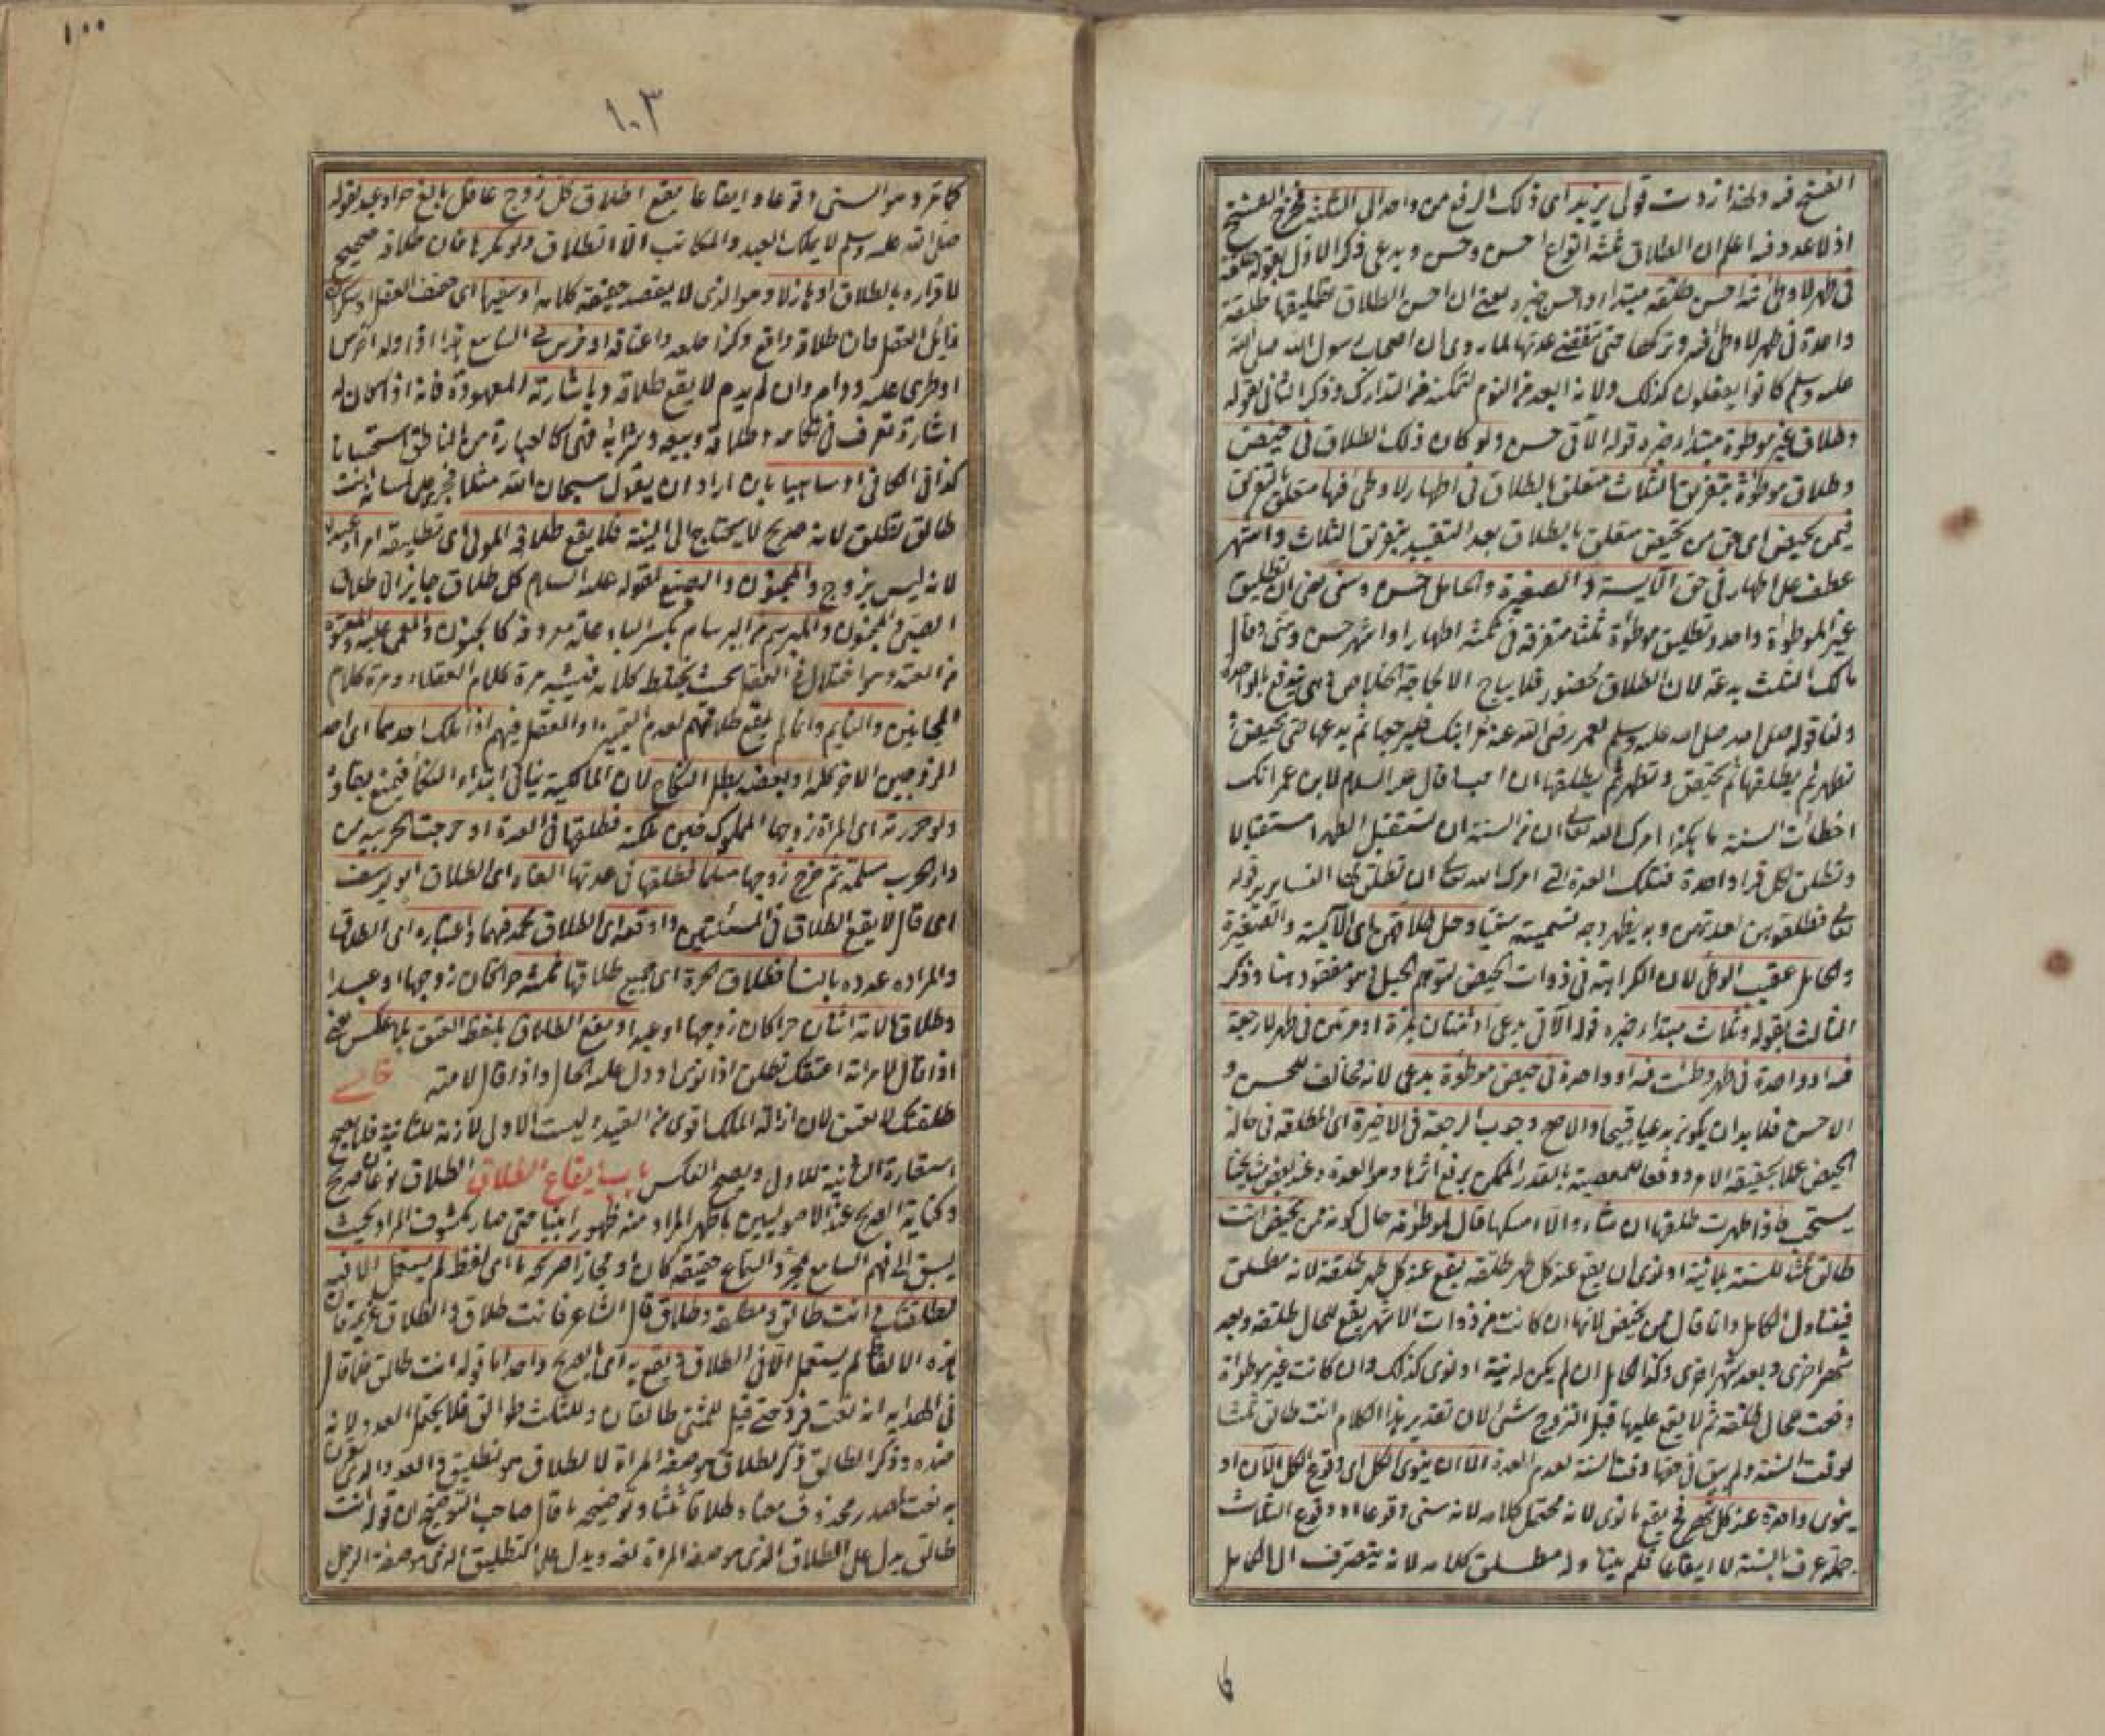 الفسخ فيه ولهذا زدت قولى يزيد اى ذلك الرفع من واحد الى الثلثة فخرج الفسخ
اذ لا عدد فيه اعلم ان الطلاق ثلثة انواع احسن وحسن وبدعى ذكر الاول بقوله طلقة
فى طهر لا وطئ فيه احسن طلقة مبتدا واحسن خبره يعنى ان احسن الطلاق تطليقها طلقة
واحدة فى طهر لا وطئ فيه وتركها حتى تنقضى عدتها لما روى ان اصحاب رسول الله صلى الله
عليه وسلم كانوا يفعلون كذلك ولانه ابعد من الندم لتمكنه من التدارك وذكر الثانى بقوله
وطلاق غير موطوءة مبتدا خبره قوله الآتى حسن ولو كان ذلك الطلاق فى حيض
وطلاق موطوءة بتفريق الثلاث متعلق بالطلاق فى اطهار لا وطئ فيها متعلق بتفريق
فيمن تحيض اى حق من تحيض متعلق بالطلاق بعد التقييد بتفريق الثلاث واشهر
عطف على اطهار فى حق الآيسة والصغيرة والحامل حسن وسنى يعنى ان تطليق
غير الموطوءة واحدة وتطليق موطوءة ثلثا متفرقة فى ثلثة اطهار او اشهر حسن وسنى وقال
مالك الثلث بدعة لان الطلاق محظور فلا يباح الا لحاجة الخلاص وهى تندفع بالواحدة
ولنا قوله صلى الله عليه وسلم لعمر رضى الله عنه مر ابنك فليراجعها ثم يدعها حتى تحيض ثم
تطهر ثم يطلقها ثم تحيض وتطهر ثم يطلقها ان احب قال عليه السلام لابن عمر انك
اخطأت السنة ما هكذا امرك الله تعالى ان من السنة ان تستقبل الطهر استقبالا
وتطلق لكل قرء واحدة فتلك العدة التى امرك الله تعالى ان تطلق لها النساء يريد قوله
تعالى فطلقوهن لعدتهن وبه يظهر وجه تسميته سنيا وحل طلاقهن اى الآيسة والصغيرة
والحامل عقيب الوطئ لان الكراهة فى ذوات الحيض لتوهم الحبل وهو مفقود هنا وذكر
الثالث بقوله وثلاث مبتدا خبره قوله الآتى بدعى او ثنتان بمرة او مرتين فى طهر لا رجعة
فيه او واحدة فى طهر وطئت فيه او واحدة فى حيض موطوءة بدعى لانه مخالف للحسن و
الاحسن فلا بد ان يكون بدعيا قبيحا والاصح وجوب الرجعة فى الاخيرة اى المطلقة فى حالة
الحيض عملا بحقيقة الامر ودفعا للمعصية بالقدر الممكن برفع اثرها وهو العدة وعند بعض مشايخنا
يستحب فاذا طهرت طلقها ان شاء والا امسكها قال لموطوءته حال كونها ممن تحيض انت
طالق ثلثا للسنة بلا نية او نوى ان يقع عند كل طهر طلقة يقع عند كل طهر طلقة لانه مطلق
فيتناول الكامل وانما قال ممن تحيض لانها ان كانت من ذوات الاشهر يقع للحال طلقة وبعد
شهر اخرى وبعد شهر اخرى وكذا الحامل ان لم يكن له نية او نوى كذلك وان كانت غير موطوءة
وقعت للحال طلقة ثم لا يقع عليها قبل التزوج شئ لان تقدير هذا الكلام انت طالق ثلثا
لوقت السنة ولم يبق فى حقها وقت السنة لعدم العدة الا ان ينوى الكل اى وقوع الكل الآن او
ينوى واحدة عند كل شهر فح يقع ما نوى لانه محتمل كلامه لانه سنى وقوعا اذ وقوع الثلاث
جملة عرف بالسنة لا ايقاعا فلم يتناوله مطلق كلامه لانه يتصرف الى الكامل
١٠٠
١٠٣
كما مر وهو السنى وقوعا وايقاعا يقع طلاق كل زوج عاقل بالغ حر او عبد لقوله
صلى الله عليه وسلم لا يملك العبد والمكاتب الا الطلاق ولو مكرها فان طلاقه صحيح
لا قراره بالطلاق او هازلا وهو الذى لا يقصد حقيقة كلامه او سفيها اى خفيف العقل او سكران
زائل العقل فان طلاقه واقع وكذا خلعه واعتاقه او اخرس
او طرى عليه ودام وان لم يدم لا يقع طلاقه وباشارته المعهودة فانه اذا كان له
اشارة تعرف فى نكاحه وطلاقه وبيعه وشرائه فهى كالعبارة من الناطق استحسانا
كذا فى الكافى او ساهيا بان اراد ان يقول سبحان الله مثلا فجرى على لسانه انت
طالق تطلق لانه صريح لا يحتاج الى النية فلا يقع طلاق المولى اى تطليقه امراة عبده
لانه ليس بزوج والمجنون والصبى لقوله عليه السلام كل طلاق جايز الا طلاق
الصبى والمجنون والمبرسم من البرسام بكسر الباء علة معروفة كالجنون والمغمى عليه والمعتوه
من العته وهو اختلال فى العقل بحيث يختلط كلامه فيشبه مرة كلام العقلاء ومرة كلام
المجانين والنايم وانما لم يقع طلاقهم لعدم التمييز او العقل فيهم اذا ملك احدهما اى احد
الزوجين الاخر كله او بعضه بطل النكاح لان المالكية تنافى ابتداء النكاح فتمنع بقاءه
ولو حررته اى المراة زوجها المملوك حين ملكته فطلقها فى العدة او خرجت الحربية من
دار الحرب مسلمة ثم خرج زوجها مسلما فطلقها فى عدتها الغاه اى الطلاق ابو يوسف
اى قال لا يقع الطلاق فى المسئلتين واوقعه اى الطلاق محمد فيهما واعتباره اى الطلاق
والمراد عدده بالنساء فطلاق حرة اى جميع طلاقها ثلثة حرا كان زوجها او عبدا
وطلاق الامة اثنان حرا كان زوجها او عبدا ويقع الطلاق بلفظ العتق بلا عكس يعنى
اذا قال لامراته اعتقتك تطلق اذا نوى او دل عليه الحال واذا قال لامته
طلقتك لا تعتق لان ازالة الملك اقوى من القيد وليست الاولى لازمة للثانية فلا يصح
استعارة الثانية للاولى ويصح العكس باب ايقاع الطلاق الطلاق نوعان صريح
وكناية الصريح عند الاصوليين ما ظهر المراد منه ظهورا بينا حتى صار مكشوف المراد بحيث
يسبق الى فهم السامع بمجرد السماع حقيقة كان او مجازا صريحه ما اى لفظ لم يستعمل الا فيه
كطلقتك وانت طالق ومطلقة وطلاق قال الشاعر فانت طلاق والطلاق عزيمة فان
هذه الالفاظ لم يستعمل الا فى الطلاق ويقع به اى بالصريح واحدة اما قوله انت طالق فلما قال
فى الهداية انه نعت فرد حتى قيل للمثنى طالقان وللثلث طوالق فلا يحتمل العدد لانه
ضده وذكر الطالق ذكر لطلاق هو صفة المراة لا لطلاق هو تطليق والعدد الذى يقرن
به نعت لمصدر محذوف معناه طلاقا ثلثا وتوضيحه ما قال صاحب التوضيح ان قوله انت
طالق يدل على الطلاق الذى هو صفة المراة لغة ويدل على التطليق الذى هو صفة الرجل